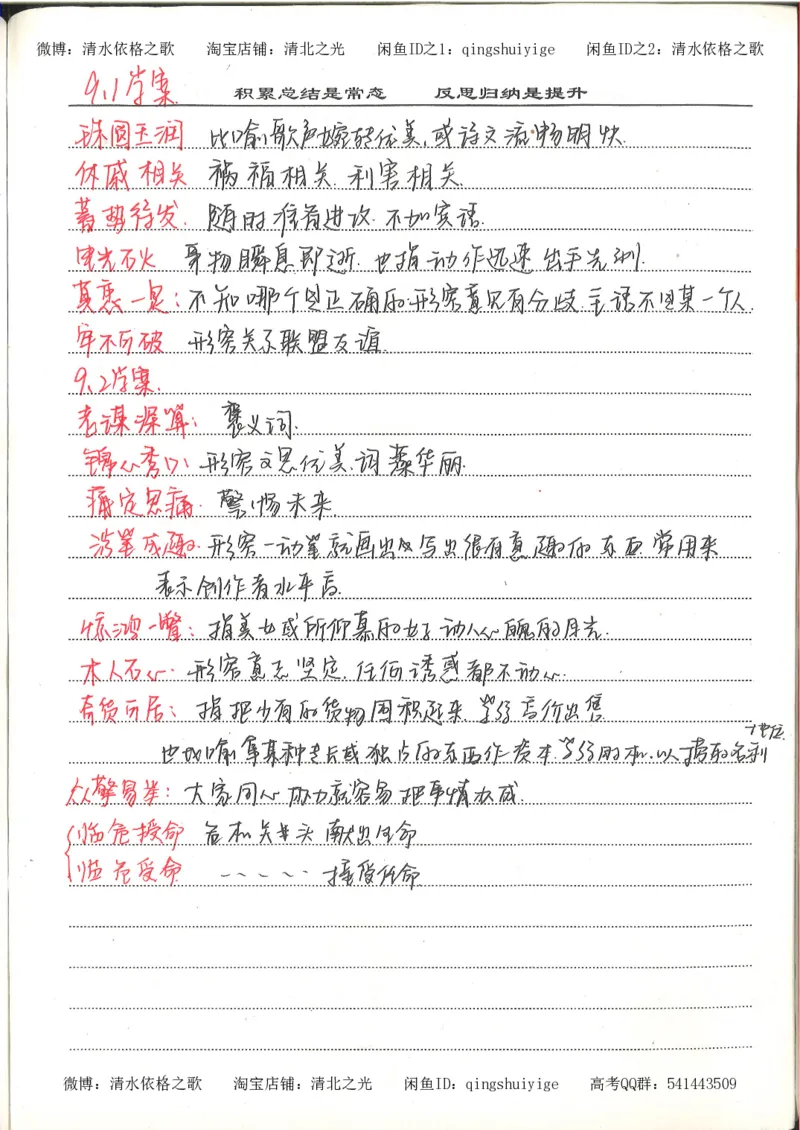 微博：清水依格之歌 淘宝店铺：清北之光 闲鱼ID之1：qingshuiyige 闲鱼ID之2：清水依格之歌
9.1学案 积累总结是常态 反思归纳是提升
珠圆玉润 比喻歌声婉转优美,或诗文流畅明快.
休戚相关 祸福相关.利害相关.
蓄势待发. 随时准备进攻.不加宾语.
电光石火 事物瞬息即逝.也指动作迅速 出手先制.
莫衷一是：不知哪个是正确的.形容意见有分歧.主语不是某一个人.
牢不可破 形容关系联盟友谊.
9.2学案.
老谋深算： 褒义词.
锦心秀口：形容文思优美.词藻华丽.
痛定思痛. 警惕未来.
涉笔成趣.形容一动笔就画出或写出很有意趣的东西 常用来
表示创作者水平高.
惊鸿一瞥：指美女或所仰慕的女子动人心魄的目光.
木人石心. 形容意志坚定.任何诱惑都不动心.
奇货可居：指把少有的货物囤积起来.等待高价出售.
也比喻拿某种专长或独占的东西作资本.等待时机.以捞取名利
地位.
众擎易举：大家同心协力就容易把事情办成.
临危授命 危机关头 献出生命
临危受命 ----- 接受任命.
微博：清水依格之歌 淘宝店铺：清北之光 闲鱼ID：qingshuiyige 高考QQ群：541443509